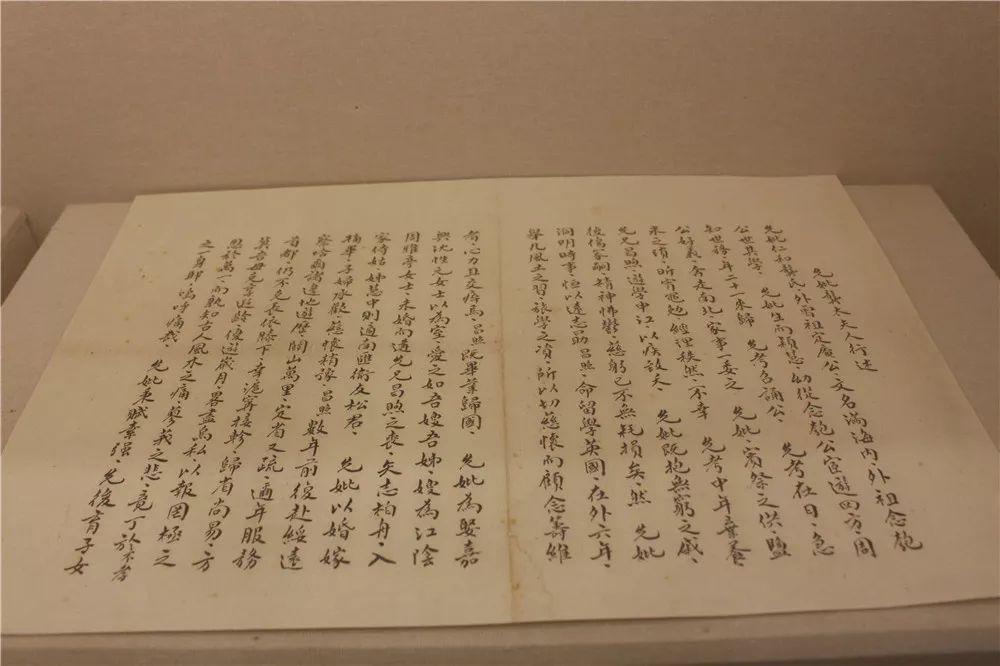 先妣龔太夫人行述
先妣仁和龔氏、外曾祖定庵公、文名滿海內、外祖念匏
公世其學、先妣生而穎慧、幼從念匏公宦遊四方、周
知世務、年二十一來歸先考君誦公、先考在日、急
公好義、奔走南北、家事一委之先妣、賓祭之供、鹽
米之瑣、昕宵黽勉、經理秩然、不幸先考中年棄養、
先兄昌煦、遊學申江、以疾歿、先妣既抱無窮之戚、
復傷家嗣、精神怫鬱、慈躬已不無耗損矣、然先妣
洞明時事、恆以遠志勗昌照、命留學英國、在外六年、
舉凡風土之習、旅學之資、所以切慈懷而顧念籌維
者、心力且交瘁焉、昌照既畢業歸國、先妣為娶嘉
興沈性元女士以為室、愛之如吾嫂吾姊、嫂為江陰
周雅亭女士、未婚而遭先兄昌煦之喪、矢志柏舟、入
家侍姑、姊慧中則適南匯衛友松君、先妣以婚嫁
稍畢、子婦承歡、慈懷稍豫、昌照數年前復赴綏遠
察哈爾諸邊地遊歷、關山萬里、定省又疏、邇年服務
首都、仍不克長依膝下、幸滬甯接軫、歸省尚易、方
冀吾母克享遐齡、優遊歲月、略盡烏私、以報罔極之
恩於萬一、而孰知古人風木之痛、蓼莪之悲、竟丁於不孝
之身耶、嗚呼痛哉、先妣秉賦素強、先後育子女